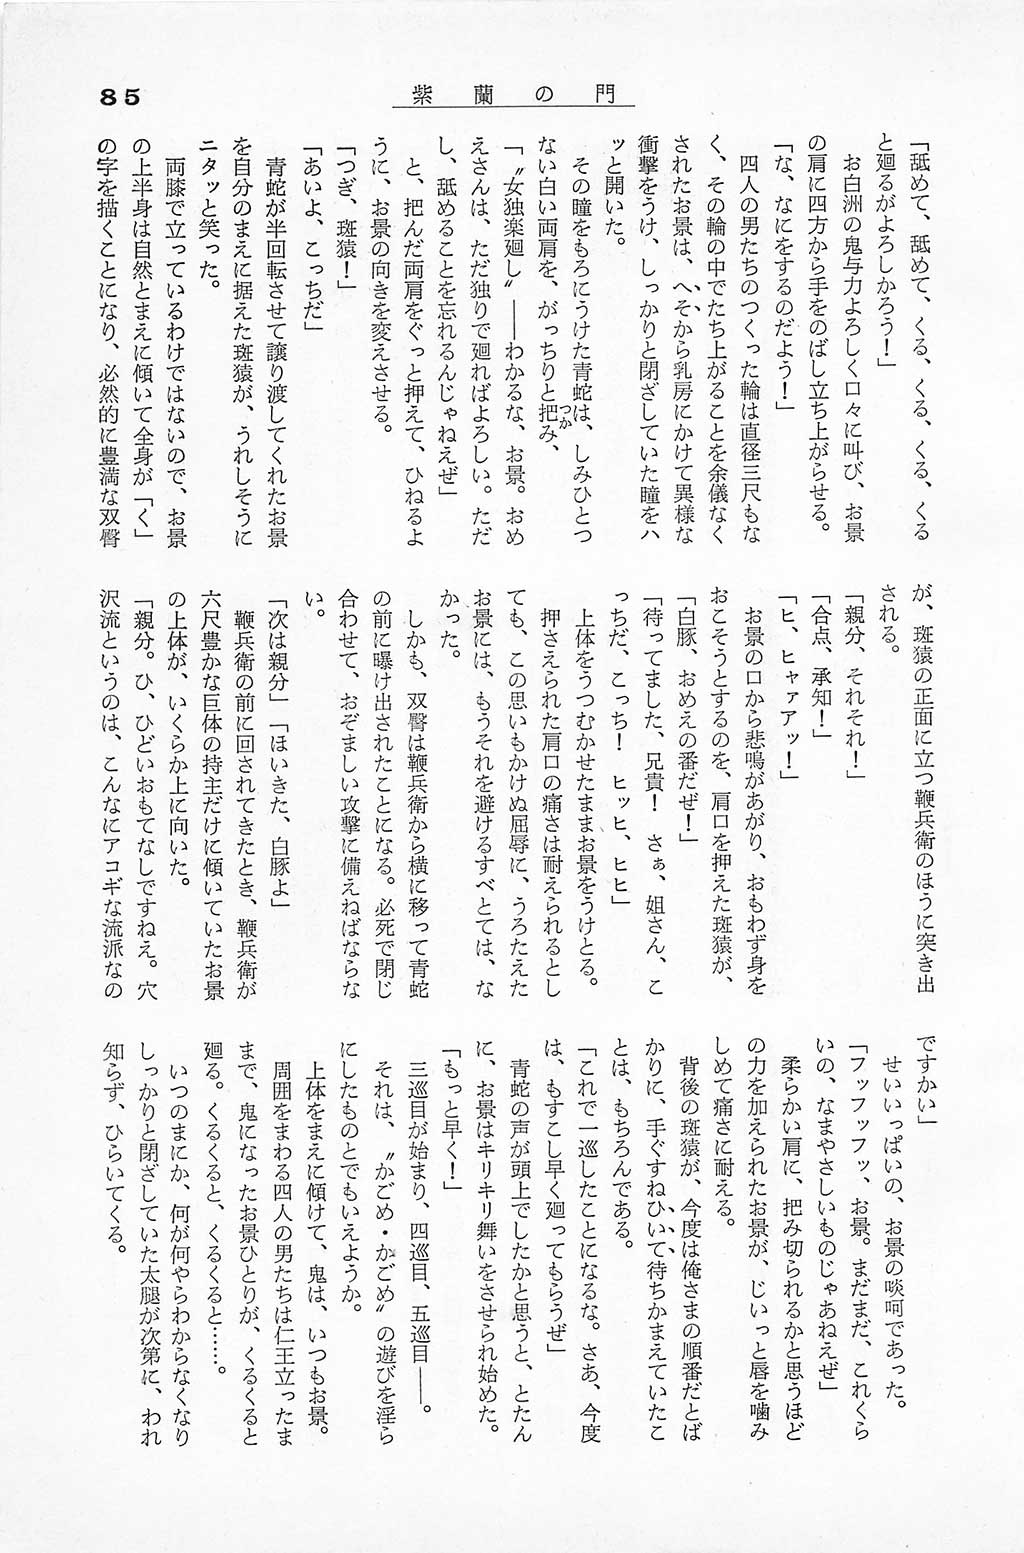 85
紫蘭の門
「舐めて、舐めて、くる、くる、くる、くる
と廻るがよろしかろう！」
お白洲の鬼与力よろしく口々に叫び、お景
の肩に四方から手をのばし立ち上がらせる。
「な、なにをするのだよう！」
四人の男たちのつくった輪は直径三尺もな
く、その輪の中でたち上がることを余儀なく
されたお景は、へそから乳房にかけて異様な
衝撃をうけ、しっかりと閉ざしていた瞳をハ
ッと開いた。
その瞳をもろにうけた青蛇は、しみひとつ
ない白い両肩を、がっちりと把み、
つか
「〝女独楽廻し〟――わかるな、お景。おめ
えさんは、ただ独りで廻ればよろしい。ただ
し、舐めることを忘れるんじゃねえぜ」
と、把んだ両肩をぐっと押えて、ひねるよ
うに、お景の向きを変えさせる。
「つぎ、斑猿！」
「あいよ、こっちだ」
青蛇が半回転させて譲り渡してくれたお景
を自分のまえに据えた斑猿が、うれしそうに
ニタッと笑った。
両膝で立っているわけではないので、お景
の上半身は自然とまえに傾いて全身が「く」
の字を描くことになり、必然的に豊満な双臀
が、斑猿の正面に立つ鞭兵衛のほうに突き出
される。
「親分、それそれ！」
「合点、承知！」
「ヒ、ヒャァアッ！」
お景の口から悲鳴があがり、おもわず身を
おこそうとするのを、肩口を押えた斑猿が、
「白豚、おめえの番だぜ！」
「待ってました、兄貴！　さぁ、姐さん、こ
っちだ、こっち！　ヒッヒ、ヒヒ」
上体をうつむかせたままお景をうけとる。
押さえられた肩口の痛さは耐えられるとし
ても、この思いもかけぬ屈辱に、うろたえた
お景には、もうそれを避けるすべとては、な
かった。
しかも、双臀は鞭兵衛から横に移って青蛇
の前に曝け出されたことになる。必死で閉じ
合わせて、おぞましい攻撃に備えねばならな
い。
「次は親分」「ほいきた、白豚よ」
鞭兵衛の前に回されてきたとき、鞭兵衛が
六尺豊かな巨体の持主だけに傾いていたお景
の上体が、いくらか上に向いた。
「親分。ひ、ひどいおもてなしですねえ。穴
沢流というのは、こんなにアコギな流派なの
ですかい」
せいいっぱいの、お景の啖呵であった。
「フッフッフッ、お景。まだまだ、これくら
いの、なまやさしいものじゃあねえぜ」
柔らかい肩に、把み切られるかと思うほど
の力を加えられたお景が、じいっと唇を噛み
しめて痛さに耐える。
背後の斑猿が、今度は俺さまの順番だとば
かりに、手ぐすねひいて待ちかまえていたこ
とは、もちろんである。
「これで一巡したことになるな。さあ、今度
は、もすこし早く廻ってもらうぜ」
青蛇の声が頭上でしたかと思うと、とたん
に、お景はキリキリ舞いをさせられ始めた。
「もっと早く！」
三巡目が始まり、四巡目、五巡目――。
それは、〝かごめ・かごめ〟の遊びを淫ら
にしたものとでもいえようか。
上体をまえに傾けて、鬼は、いつもお景。
周囲をまわる四人の男たちは仁王立ったま
まで、鬼になったお景ひとりが、くるくると
廻る。くるくると、くるくると……。
いつのまにか、何が何やらわからなくなり
しっかりと閉ざしていた太腿が次第に、われ
知らず、ひらいてくる。